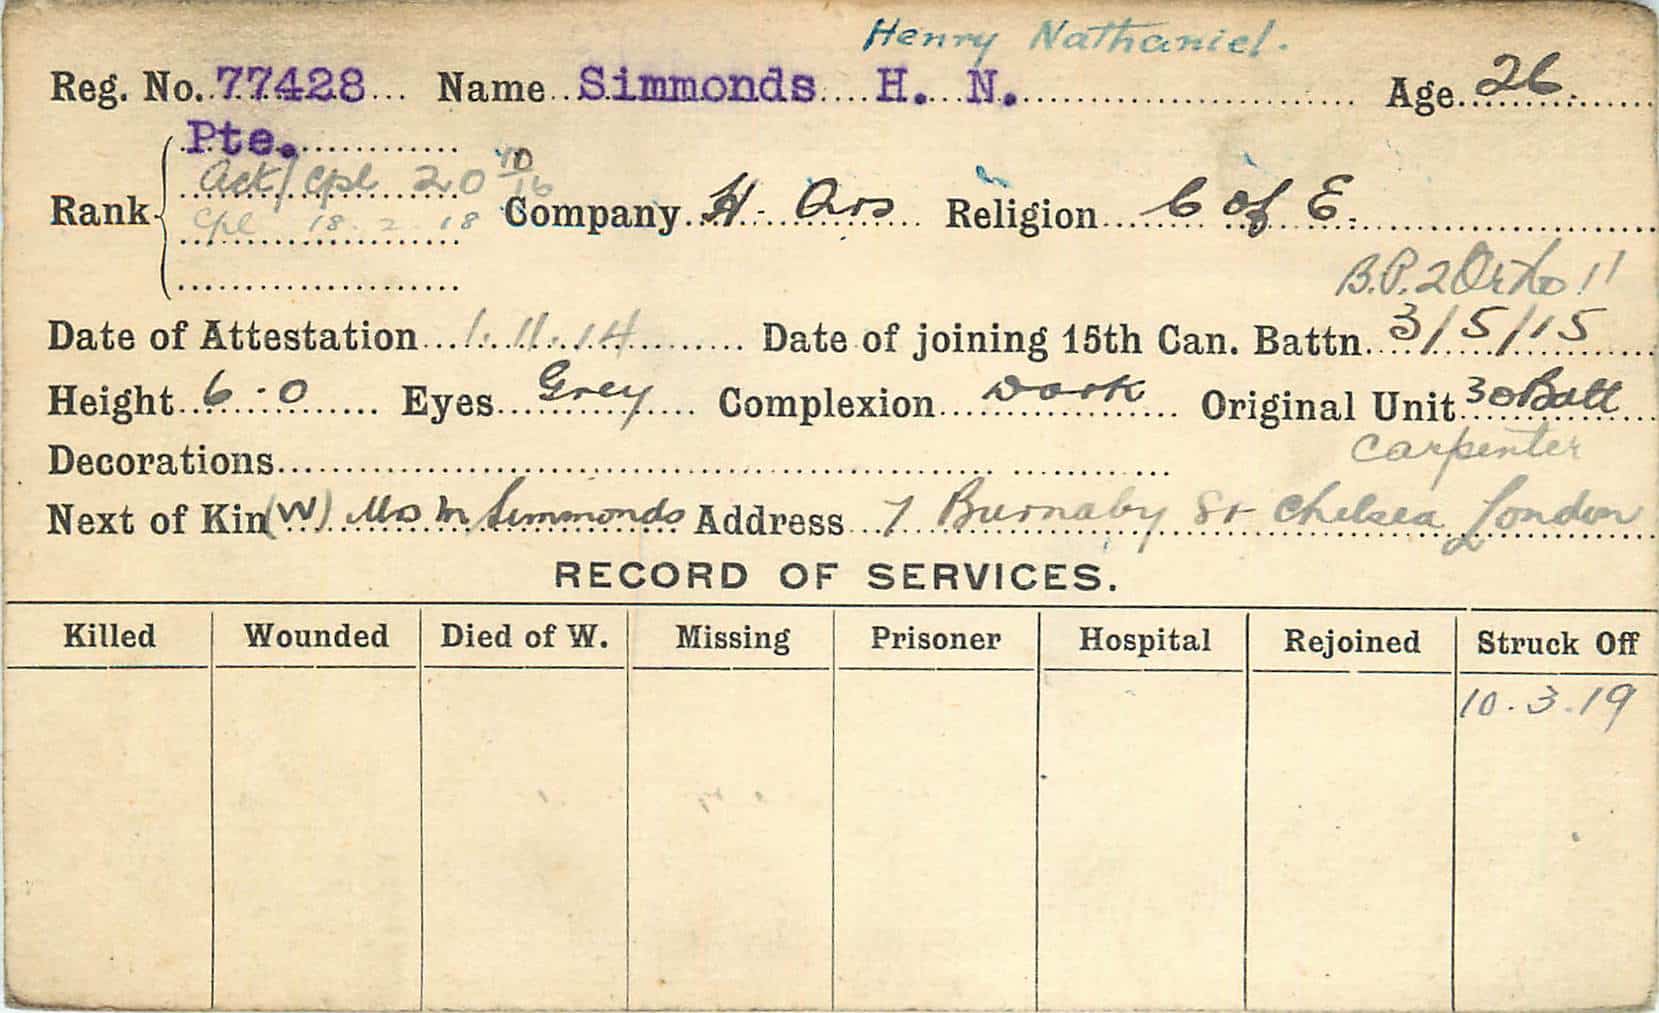 Henry Nathaniel.
Reg. No. 77428 Name Simmonds H. N. Age 26
Pte.
Act/Cpl 20 10/16
Rank Company H. Qrs Religion C of E.
Cpl 18.2.18
B.P. 2 Ortho 11
Date of Attestation 1.11.14 Date of joining 15th Can. Battn. 3/5/15
Height 6.0 Eyes Grey Complexion Dark Original Unit 30 Batt
Decorations Carpenter
Next of Kin (W) Mrs M Simmonds Address 7 Burnaby St Chelsea London
RECORD OF SERVICES.
Killed Wounded Died of W. Missing Prisoner Hospital Rejoined Struck Off
10.3.19